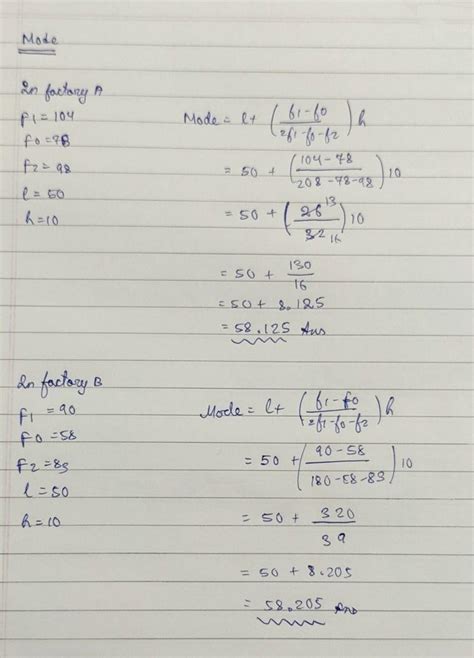 Mode
In factory A
f1 = 104
f0 = 78
f2 = 98
l = 50
h = 10
Mode = l + (f1 - f0 / 2f1 - f0 - f2) h
= 50 + (104 - 78 / 208 - 78 - 98) 10
= 50 + (26 13 / 32 16) 10
= 50 + 130 / 16
= 50 + 8.125
= 58.125 Ans
In factory B
f1 = 90
f0 = 58
f2 = 83
l = 50
h = 10
Mode = l + (f1 - f0 / 2f1 - f0 - f2) h
= 50 + (90 - 58 / 180 - 58 - 83) 10
= 50 + 320 / 39
= 50 + 8.205
= 58.205 Ans